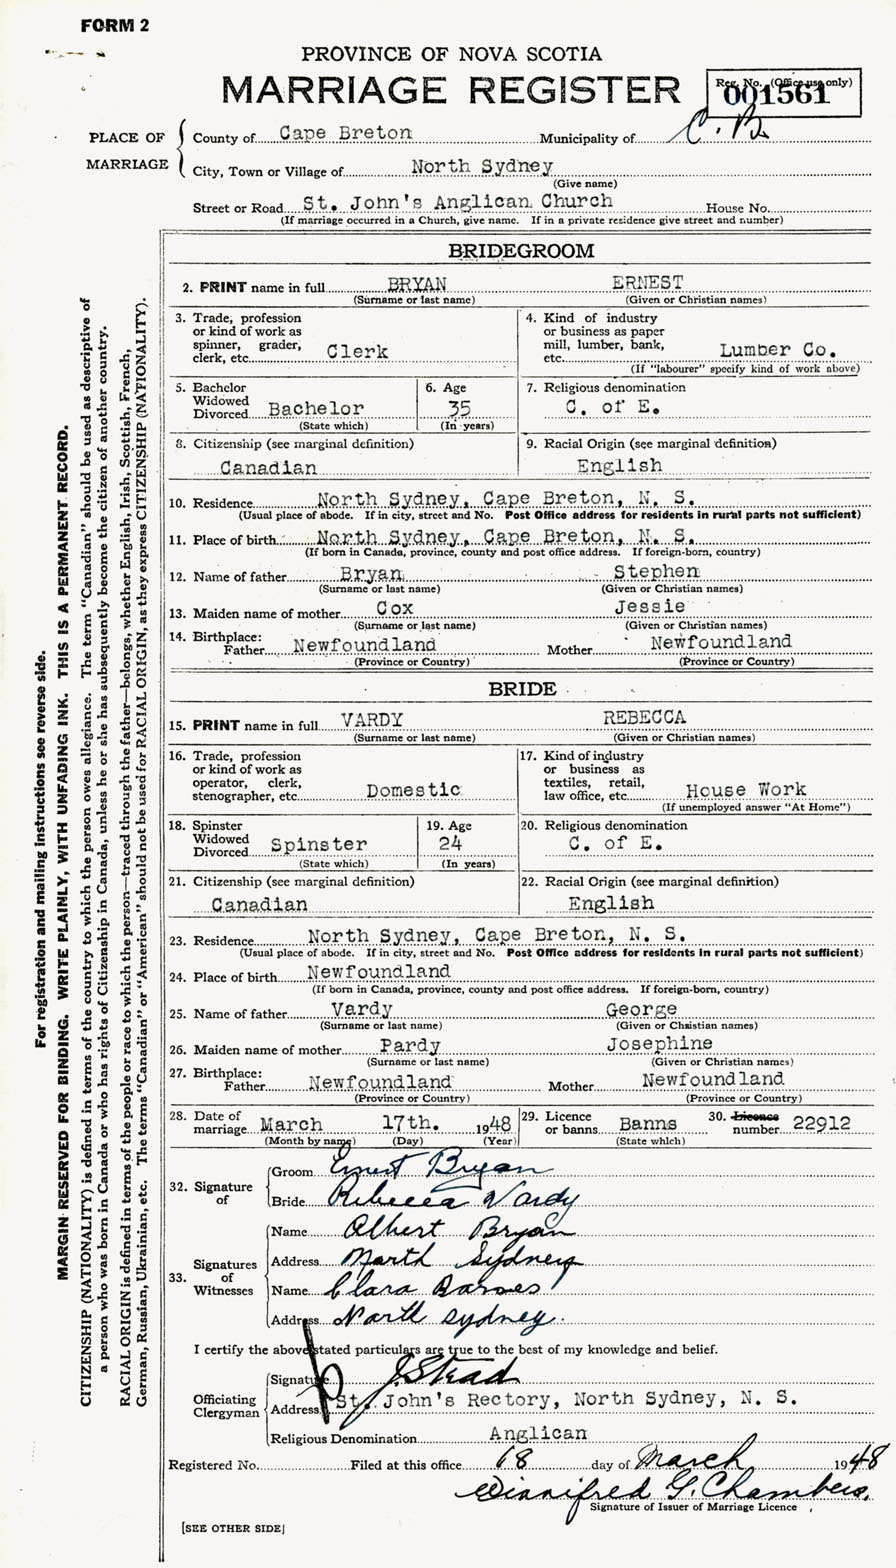 FORM 2
PROVINCE OF NOVA SCOTIA
MARRIAGE REGISTER
Reg. No. (Office use only)
001561
PLACE OF MARRIAGE
County of Cape Breton Municipality of C. B.
City, Town or Village of North Sydney
(Give name)
Street or Road St. John's Anglican Church House No.
(If marriage occurred in a Church, give name. If in a private residence give street and number)
BRIDEGROOM
2. PRINT name in full BRYAN ERNEST
(Surname or last name) (Given or Christian names)
3. Trade, profession or kind of work as spinner, grader, clerk, etc. Clerk
4. Kind of industry or business as paper mill, lumber, bank, etc. Lumber Co.
(If "labourer" specify kind of work above)
5. Bachelor Widowed Divorced Bachelor
(State which)
6. Age 35
(In years)
7. Religious denomination
C. of E.
8. Citizenship (see marginal definition)
Canadian
9. Racial Origin (see marginal definition)
English
10. Residence North Sydney, Cape Breton, N. S.
(Usual place of abode. If in city, street and No. Post Office address for residents in rural parts not sufficient)
11. Place of birth North Sydney, Cape Breton, N. S.
(If born in Canada, province, county and post office address. If foreign-born, country)
12. Name of father Bryan Stephen
(Surname or last name) (Given or Christian names)
13. Maiden name of mother Cox Jessie
(Surname or last name) (Given or Christian names)
14. Birthplace:
Father Newfoundland Mother Newfoundland
(Province or Country) (Province or Country)
BRIDE
15. PRINT name in full VARDY REBECCA
(Surname or last name) (Given or Christian names)
16. Trade, profession or kind of work as operator, clerk, stenographer, etc. Domestic
17. Kind of industry or business as textiles, retail, law office, etc. House Work
(If unemployed answer "At Home")
18. Spinster Widowed Divorced Spinster
(State which)
19. Age 24
(In years)
20. Religious denomination
C. of E.
21. Citizenship (see marginal definition)
Canadian
22. Racial Origin (see marginal definition)
English
23. Residence North Sydney, Cape Breton, N. S.
(Usual place of abode. If in city, street and No. Post Office address for residents in rural parts not sufficient)
24. Place of birth Newfoundland
(If born in Canada, province, county and post office address. If foreign-born, country)
25. Name of father Vardy George
(Surname or last name) (Given or Christian names)
26. Maiden name of mother Pardy Josephine
(Surname or last name) (Given or Christian names)
27. Birthplace:
Father Newfoundland Mother Newfoundland
(Province or Country) (Province or Country)
28. Date of marriage March 17th. 1948
(Month by name) (Day) (Year)
29. Licence or banns Banns
(State which)
30. Licence number 22912
32. Signature of
Groom Ernest Bryan
Bride Rebecca Vardy
33. Signatures of Witnesses
Name Albert Bryan
Address North Sydney
Name Clara Barnes
Address North Sydney.
I certify the above stated particulars are true to the best of my knowledge and belief.
Officiating Clergyman
Signature J. Stead
Address St. John's Rectory, North Sydney, N. S.
Religious Denomination Anglican
Registered No. Filed at this office 18 day of March 1948
Winnifred G. Chambers.
Signature of Issuer of Marriage Licence
[SEE OTHER SIDE]
For registration and mailing instructions see reverse side.
MARGIN RESERVED FOR BINDING. WRITE PLAINLY, WITH UNFADING INK. THIS IS A PERMANENT RECORD.
CITIZENSHIP (NATIONALITY) is defined in terms of the country to which the person owes allegiance. The term "Canadian" should be used as descriptive of
a person who was born in Canada or who has rights of Citizenship in Canada, unless he or she has subsequently become the citizen of another country.
RACIAL ORIGIN is defined in terms of the people or race to which the person—traced through the father—belongs, whether English, Irish, Scottish, French,
German, Russian, Ukrainian, etc. The terms "Canadian" or "American" should not be used for RACIAL ORIGIN, as they express CITIZENSHIP (NATIONALITY).